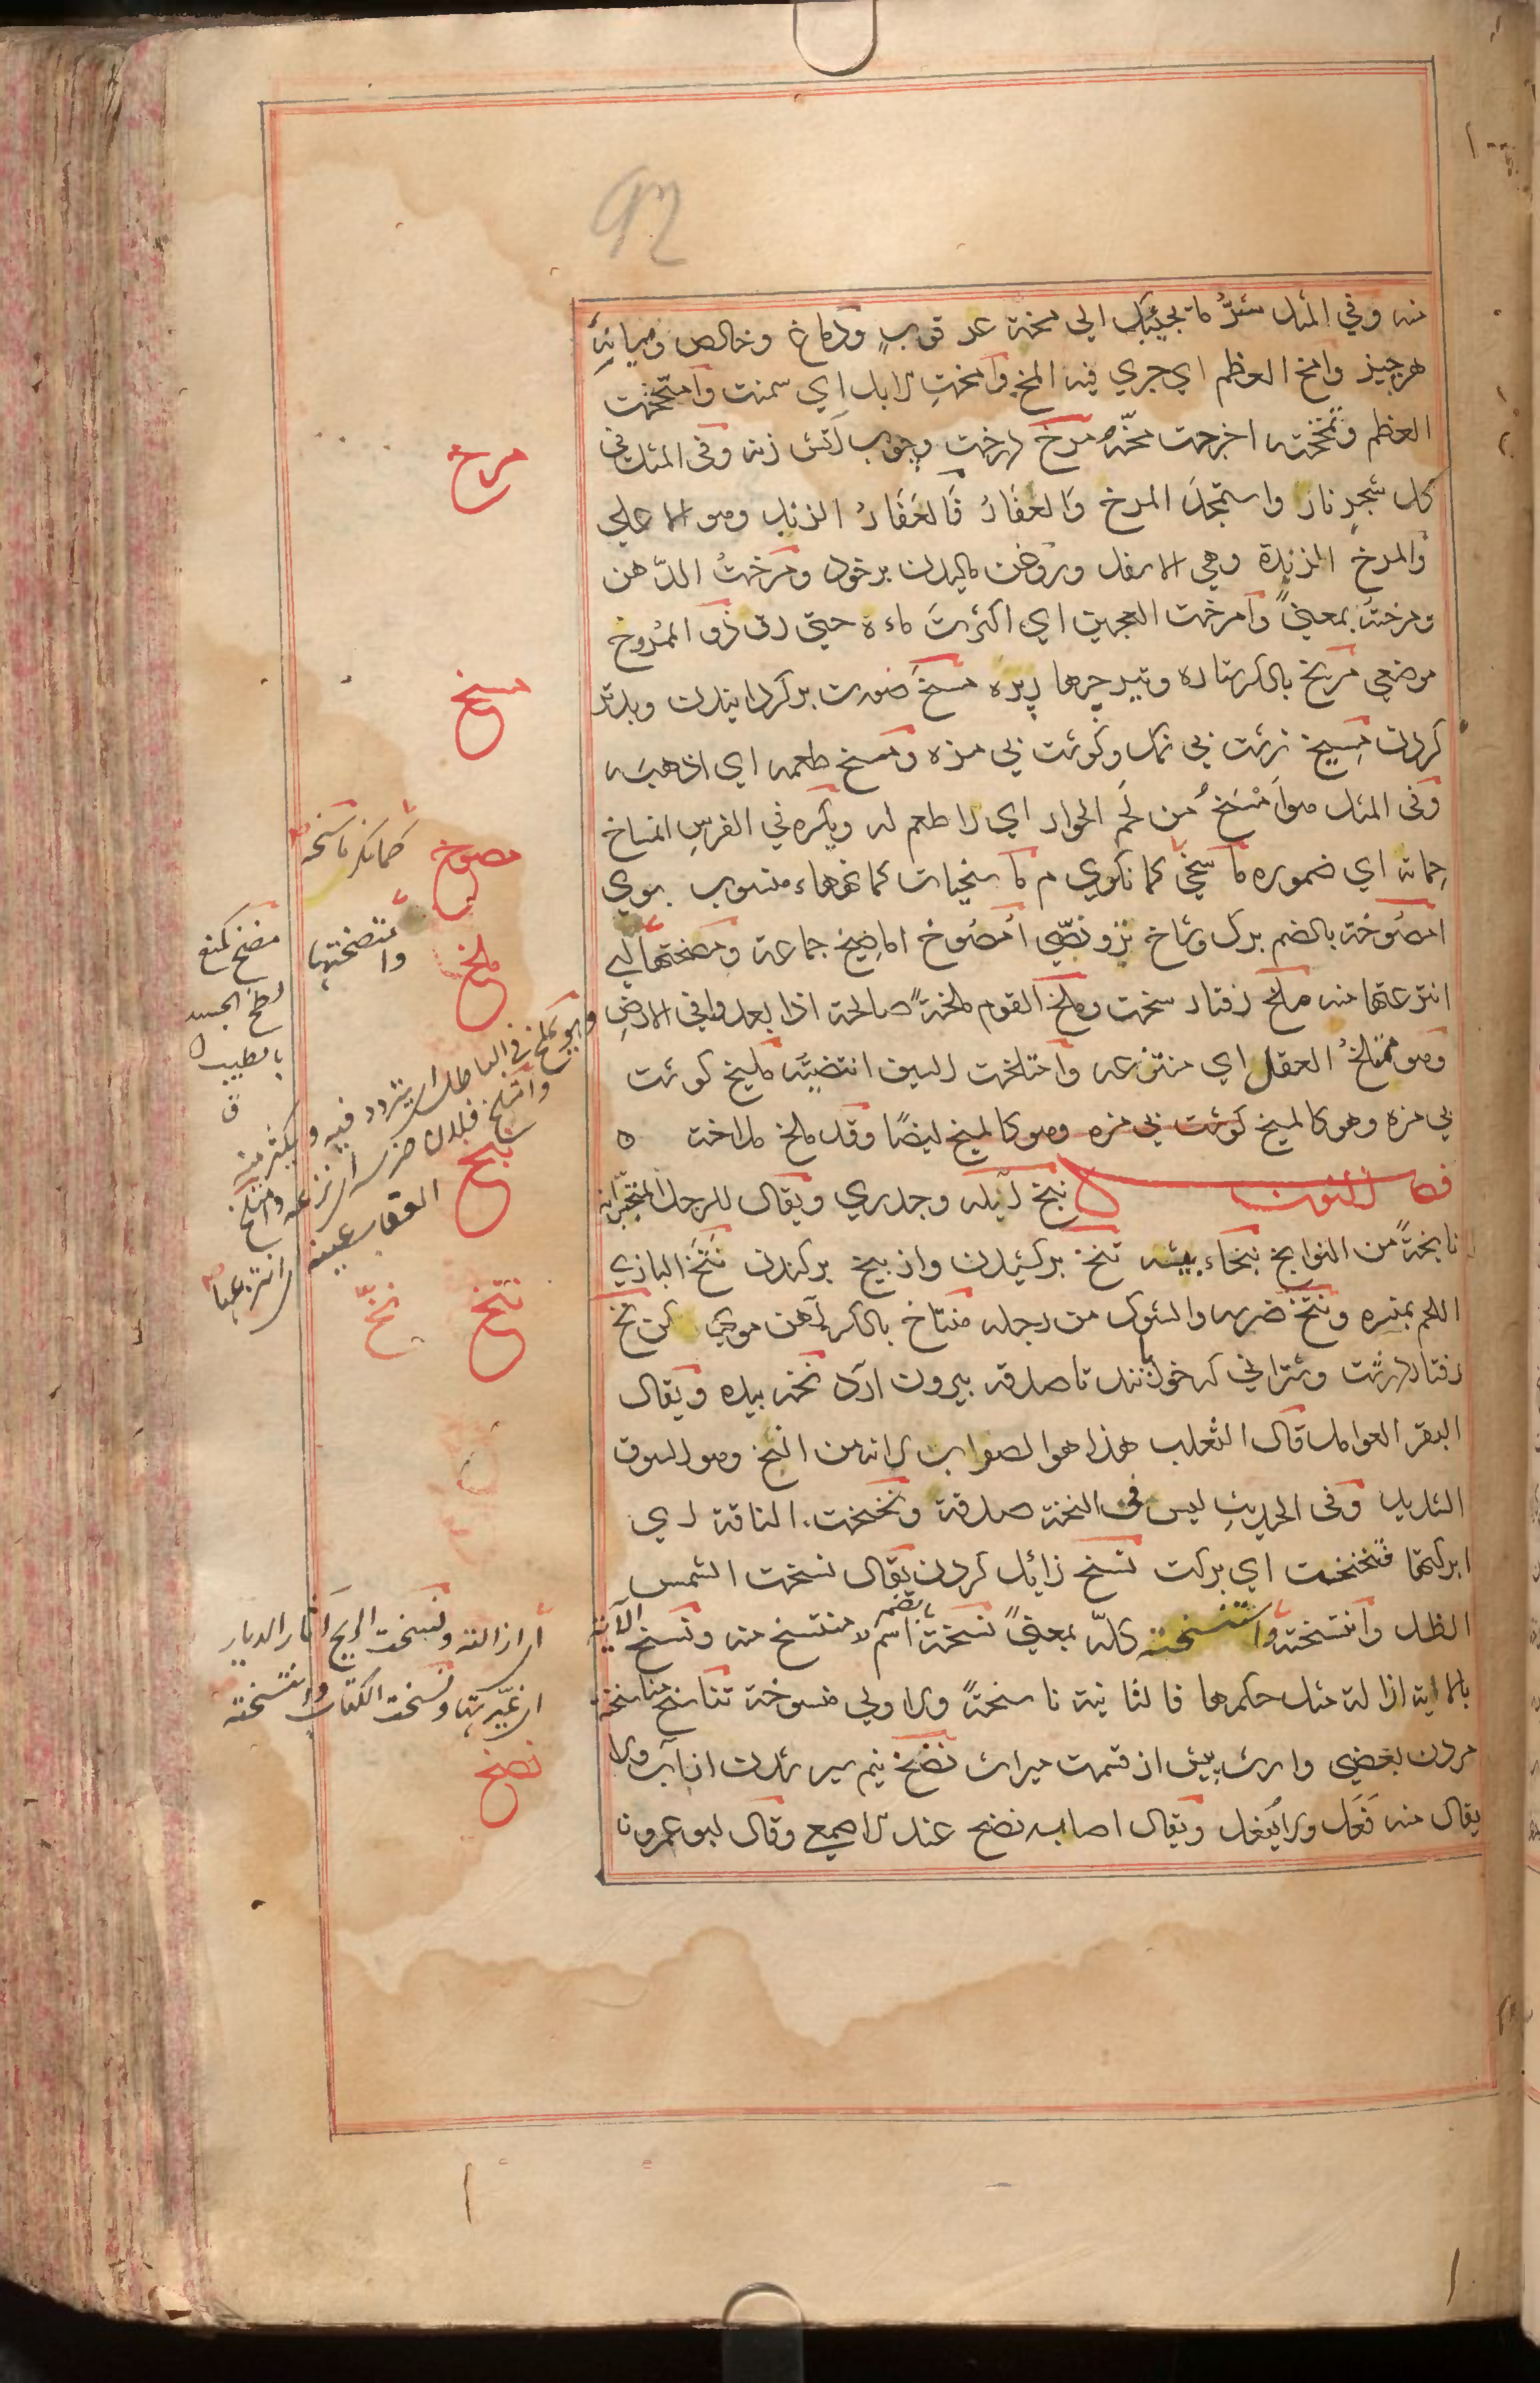 92
منه وفي المثل شرٌّ ما يجيئك الي مخة عرقوبٍ ودماغ وخالص وميانه
هر چيز وامخ العظم اي جري فيه المخ وامخت الابل اي سمنت وامتخخت
العظم وتمخخته اخرجت مخّه مرخ درخت وچوب آتش زنه وفي المثل في
كل شجرٍ نار واستمجدَ المرخ والعفار فالعفار الزند وهو الاعلي
والمرخ الزندة وهي الاسفل وروغن ماليدن بر خود ومرختُ الدّهن
ومرخته بمعنيً وامرخت العجين اي اكثرت ماءه حتي رق ذو الممروخ
موضعي مريخ بالكسر ستاره وتير چهار پره مسخ صورت بر گردانيدن وبدتر
كردن مسيخ زشت بي نمك وگوشت بي مزه ومسخ طعمه اي اذهبه
وفي المثل هو امسخ من لحم الحوار اي لا طعم له ويكره في الفرس انمساخ
حماته اي ضموره ماسخي كمانگري م ماسخيات كمانها منسوب بوي
امصوخة بالضم برگ وشاخ يز ونصّي امصوخ اماصيخ جماعة ومصختها اي
انتزعتها منه ملخ رفتار سخت وملخ القوم ملخةً صالحة اذا بعدوا في الارض
وهو ممتلخ العقل اي منتزعه وامتلخت السيف انتضيته مليخ گوشت
بي مزه وهو كالمسيخ گوشت بي مزه وهو كالمسيخ ايضًا وقد ملخ ملاخة ه
فصل النون نبخ آبله وجدري ويقال للرجل المتجبر انه
نابخةً من النوابخ نبخاء پشته نتخ بر كشيدن واز بيخ بر كندن نتخ البازي
اللحم بمنسره ونتخ ضرسه والشوك من رجله منتاخ بالكسر آهن موي كن نخ
رفتار درشت وشتراني كه خوانند تا صدقه بيرون آرد نخه برده ويقال
البقر العوامل قال الثعلب هذا هو الصواب لانه من النخ وهو السوق
الشديد وفي الحديث ليس في النخة صدقة ونخنخت الناقة اي
ابركتها فتنخنخت اي بركت نسخ زايل كردن يقال نسخت الشمس
الظل وانتسخته واستنسخته كلّه بمعنيً نسخة بالضم اسم لا منتسخ منه ونسخ الآية
بالاية ازالة مثل حكمها فالثانية ناسخةً والاولي منسوخة تناسخ مناسخة
مردن بعضي وارث پيش از قسمت ميراث نضخ نيم سير شدن از آب ولا
يقال منه فعل ولا يفعل ويقال اصابه نضخ عند الاصمعي وقال ابو عمرو نا
مرخ
مسخ
كمانگر ناسخه
مصوخ
وامتصختها
مضخ كمنع
لطخ الجسد
بالطيب
ق
ملخ
وهو يملخ في الباطل اي يتردد فيه ويكثر منه
وامتلخ فلان ضرسه اي نزعه وامتلخ
العقاب عينه اي انتزعها
نبخ
نتخ
نخّ
اي ازالته ونسخت الريح اثار الديار
اي غيرتها ونسخت الكتاب وانتسخته
نضخ